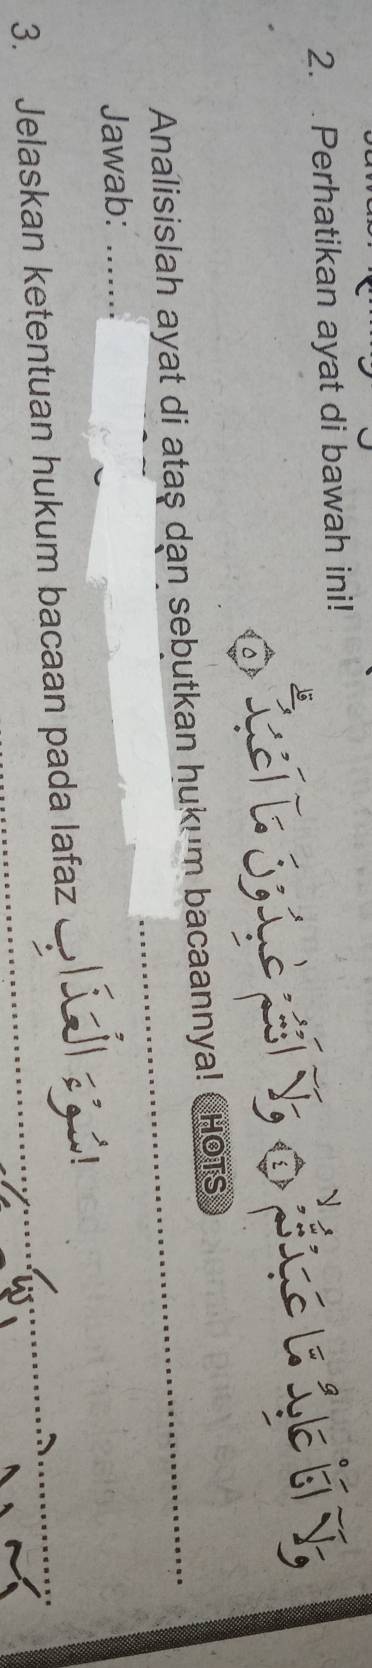 2. Perhatikan ayat di bawah ini!
وَلَآ اَنَا۠ عَابِدٌ مَّا عَبَدْتُّمْۙ ﴿٤﴾ وَلَآ اَنْتُمْ عٰبِدُوْنَ مَآ اَعْبُدُۗ ﴿٥﴾
Analisislah ayat di atas dan sebutkan hukum bacaannya! HOTS
Jawab: ......
3. Jelaskan ketentuan hukum bacaan pada lafaz سُوْۤءَ الْعَذَابِ!